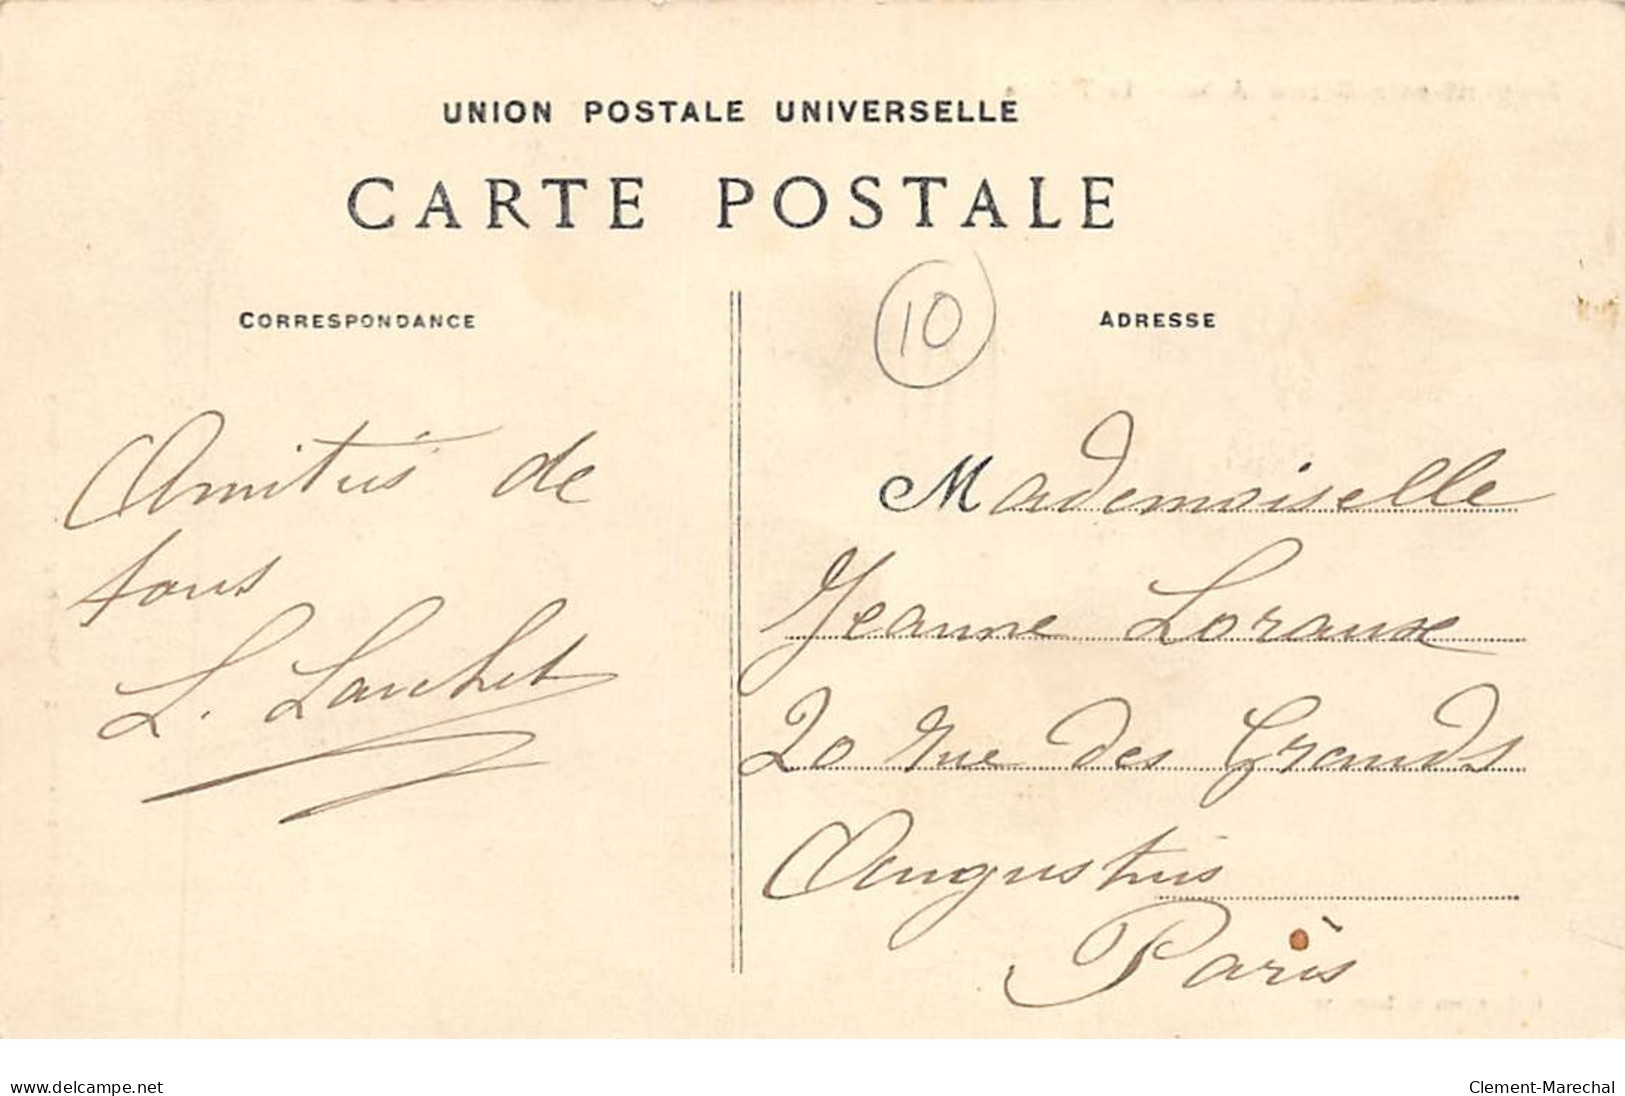 UNION POSTALE UNIVERSELLE
CARTE POSTALE
CORRESPONDANCE
ADRESSE
10
Amitiés de
tous
L. Larchet
Mademoiselle
Jeanne
20 rue des Grands
Augustins
Paris
www.delcampe.net
Clement-Marechal